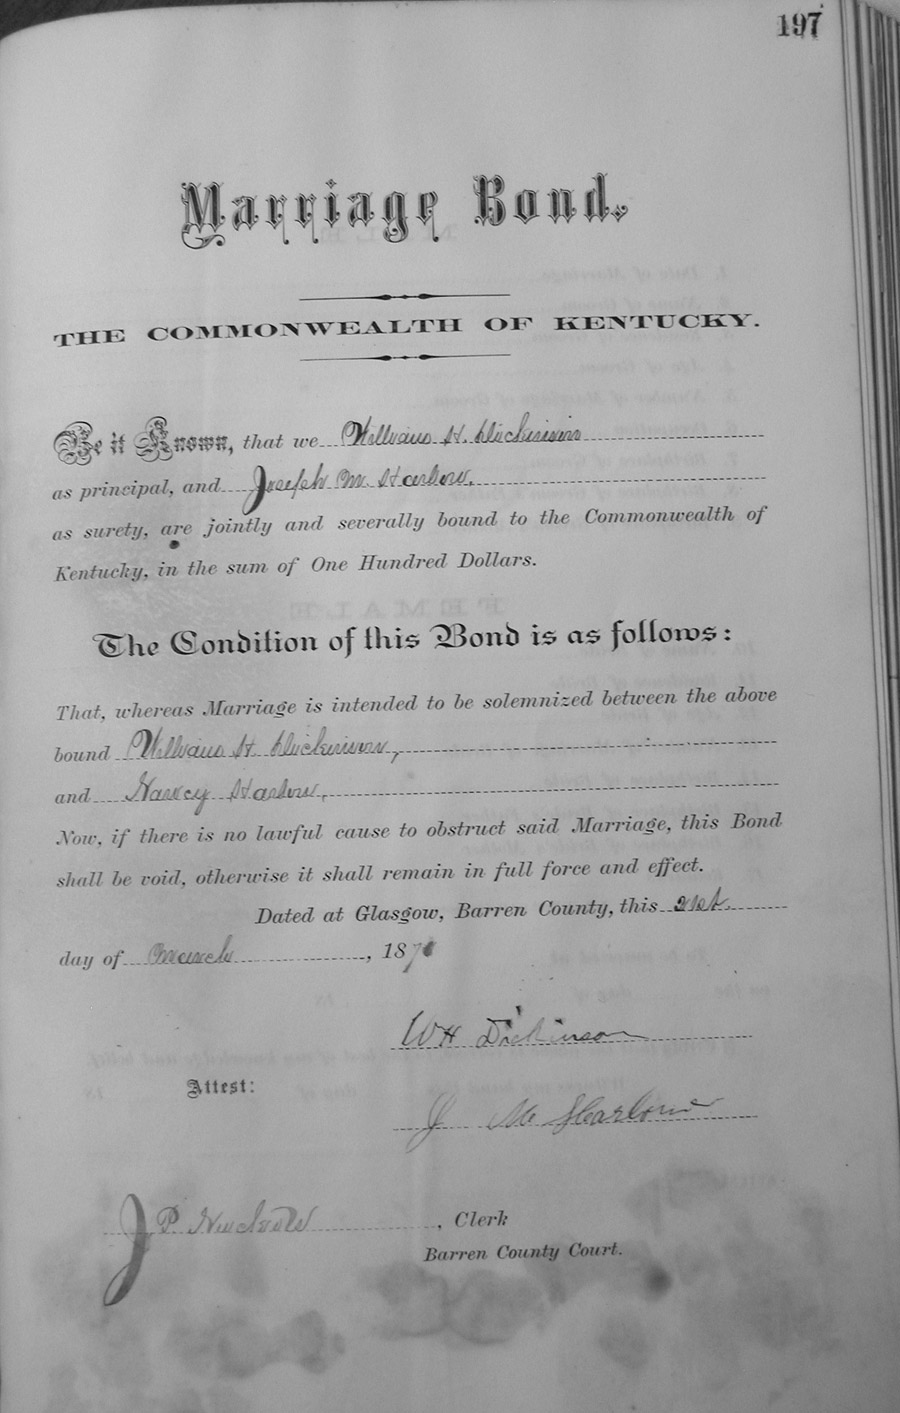 197
Marriage Bond.
THE COMMONWEALTH OF KENTUCKY.
Be it Known, that we William H. Dickinson
as principal, and Joseph M. Harlow,
as surety, are jointly and severally bound to the Commonwealth of
Kentucky, in the sum of One Hundred Dollars.
The Condition of this Bond is as follows:
That, whereas Marriage is intended to be solemnized between the above
bound William H. Dickinson,
and Nancy Harlow,
Now, if there is no lawful cause to obstruct said Marriage, this Bond
shall be void, otherwise it shall remain in full force and effect.
Dated at Glasgow, Barren County, this 21st
day of March, 187
WH Dickinson
Attest:
J M Harlow
J P , Clerk
Barren County Court.